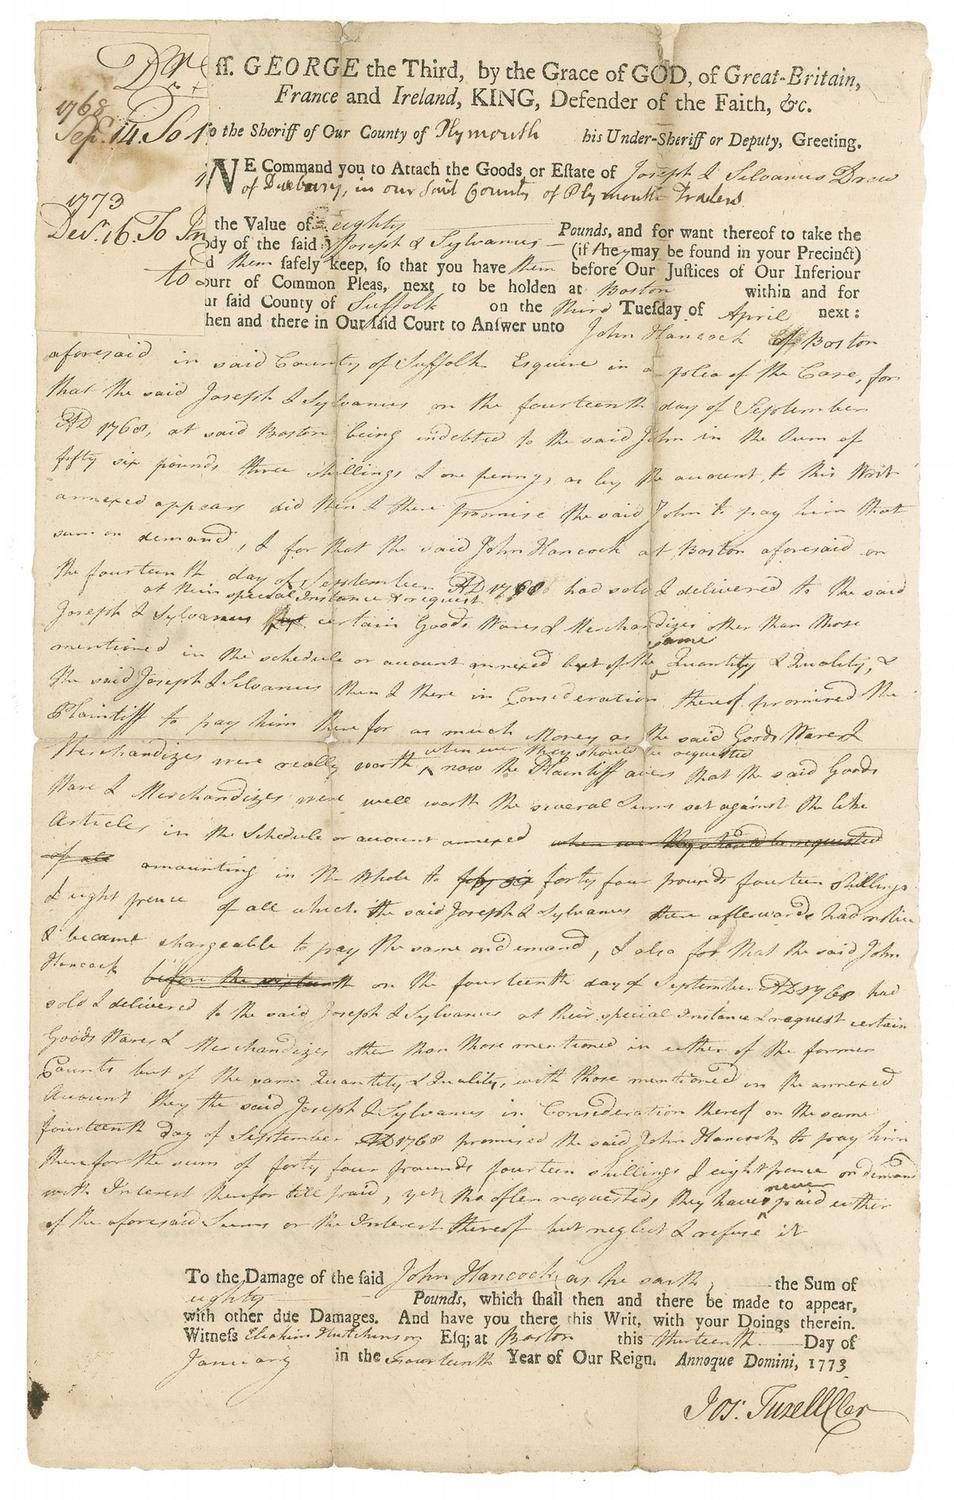 Dr
1768
Sep. 14. To
1773
Decr. 16. To In
to
ss. GEORGE the Third, by the Grace of GOD, of Great-Britain,
France and Ireland, KING, Defender of the Faith, &c.
o the Sheriff of Our County of Plymouth his Under-Sheriff or Deputy, Greeting.
WE Command you to Attach the Goods or Estate of Joseph & Silvanus Drew
of Duxbury, in our said County of Plymouth Traders
the Value of eighty Pounds, and for want thereof to take the
dy of the said Joseph & Sylvanus (if they may be found in your Precinct)
d them safely keep, so that you have them before Our Justices of Our Inferiour
urt of Common Pleas, next to be holden at Boston within and for
ur said County of Suffolk on the third Tuesday of April next:
hen and there in Our said Court to Answer unto John Hancock of Boston
aforesaid in said County of Suffolk Esquire in a plea of the Case, for
that the said Joseph & Sylvanus on the fourteenth day of September
AD 1768, at said Boston being indebted to the said John in the Sum of
fifty six pounds three shillings & one penny, as by the account, to this Writ
annexed appears did then & there promise the said John to pay him that
sum on demand, & for that the said John Hancock at Boston aforesaid on
the fourteenth day of September AD 1768 had sold & delivered to the said
at their special Instance & request
Joseph & Sylvanus certain Goods Wares & Merchandizes other than those
same
mentioned in the schedule or account annexed but of the Quantity & Quality, &
the said Joseph & Silvanus then & there in Consideration thereof promised the
Plaintiff to pay him therefor as much Money as the said Goods Wares &
when ever they should be requested
Merchandizes were really worth now the Plaintiff avers that the said Goods
Ware & Merchandizes were well worth the several Sums set against the like
Articles in the Schedule or account annexed when ever they should be requested
of all amounting in the whole to fifty six forty four pounds fourteen shillings
& eight pence of all which the said Joseph & Sylvanus there afterwards had notice
& became chargeable to pay the same on demand, & also for that the said John
Hancock before the sixteenth on the fourteenth day of September AD 1768 had
sold & delivered to the said Joseph & Sylvanus at their special Instance & request certain
Goods Wares & Merchandizes other than those mentioned in either of the former
Counts but of the same Quantity & Quality, with those mentioned in the annexed
Account they the said Joseph & Sylvanus in Consideration thereof on the same
fourteenth day of September AD 1768 promised the said John Hancock to pay him
therefor the sum of forty four pounds fourteen shillings & eight pence on demand
never
with Interest therefor till paid, yet tho often requested, they have paid either
of the aforesaid Sums or the Interest thereof but neglect & refuse it
To the Damage of the said John Hancock, as he saith, the Sum of
eighty Pounds, which shall then and there be made to appear,
with other due Damages. And have you there this Writ, with your Doings therein.
Witness Eliakim Hutchinson Esq; at Boston this thirteenth Day of
January in the fourteenth Year of Our Reign. Annoque Domini, 1773